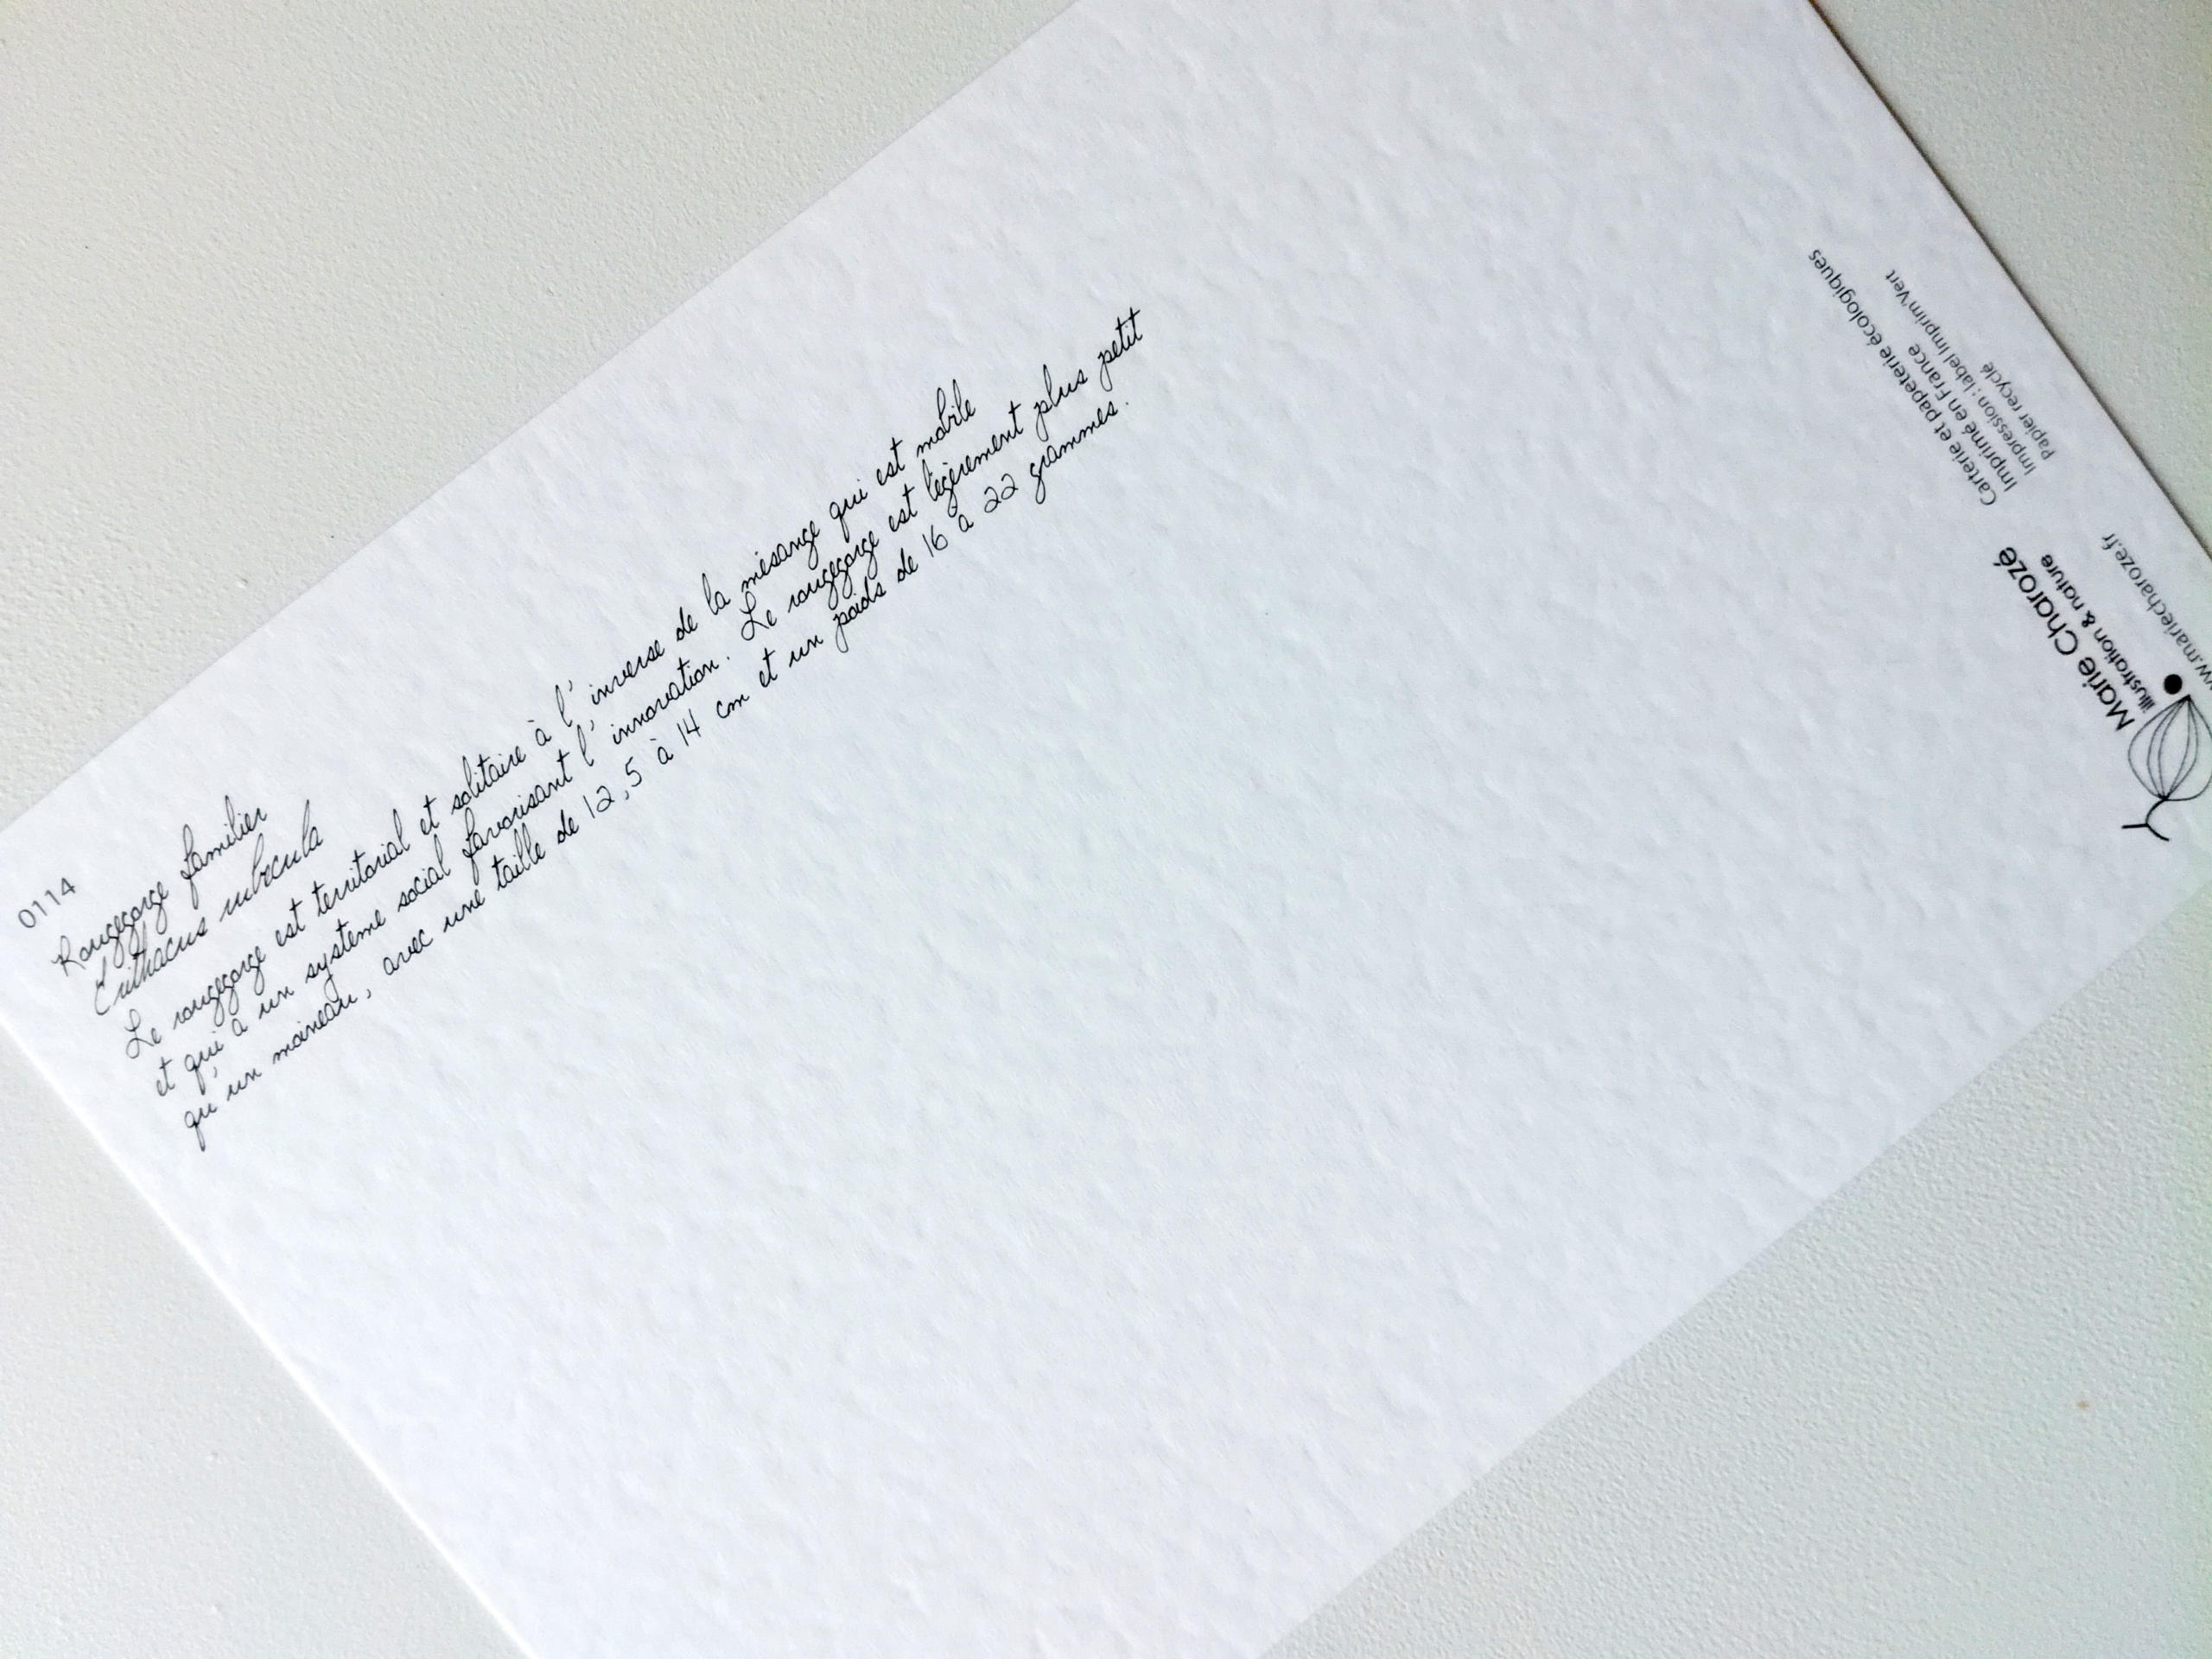 0114
Rougegorge familier
Erithacus rubecula
Le rougegorge est territorial et solitaire à l'inverse de la mésange qui est mobile
et qui a un système social favorisant l'innovation. Le rougegorge est légèrement plus petit
qu'un moineau, avec une taille de 12,5 à 14 cm et un poids de 16 à 22 grammes.
Marie Charozé
illustration & nature
ww.mariecharoze.fr
Carterie et papeterie écologiques
Imprimé en France
Impression : label Imprim'Vert
Papier recyclé